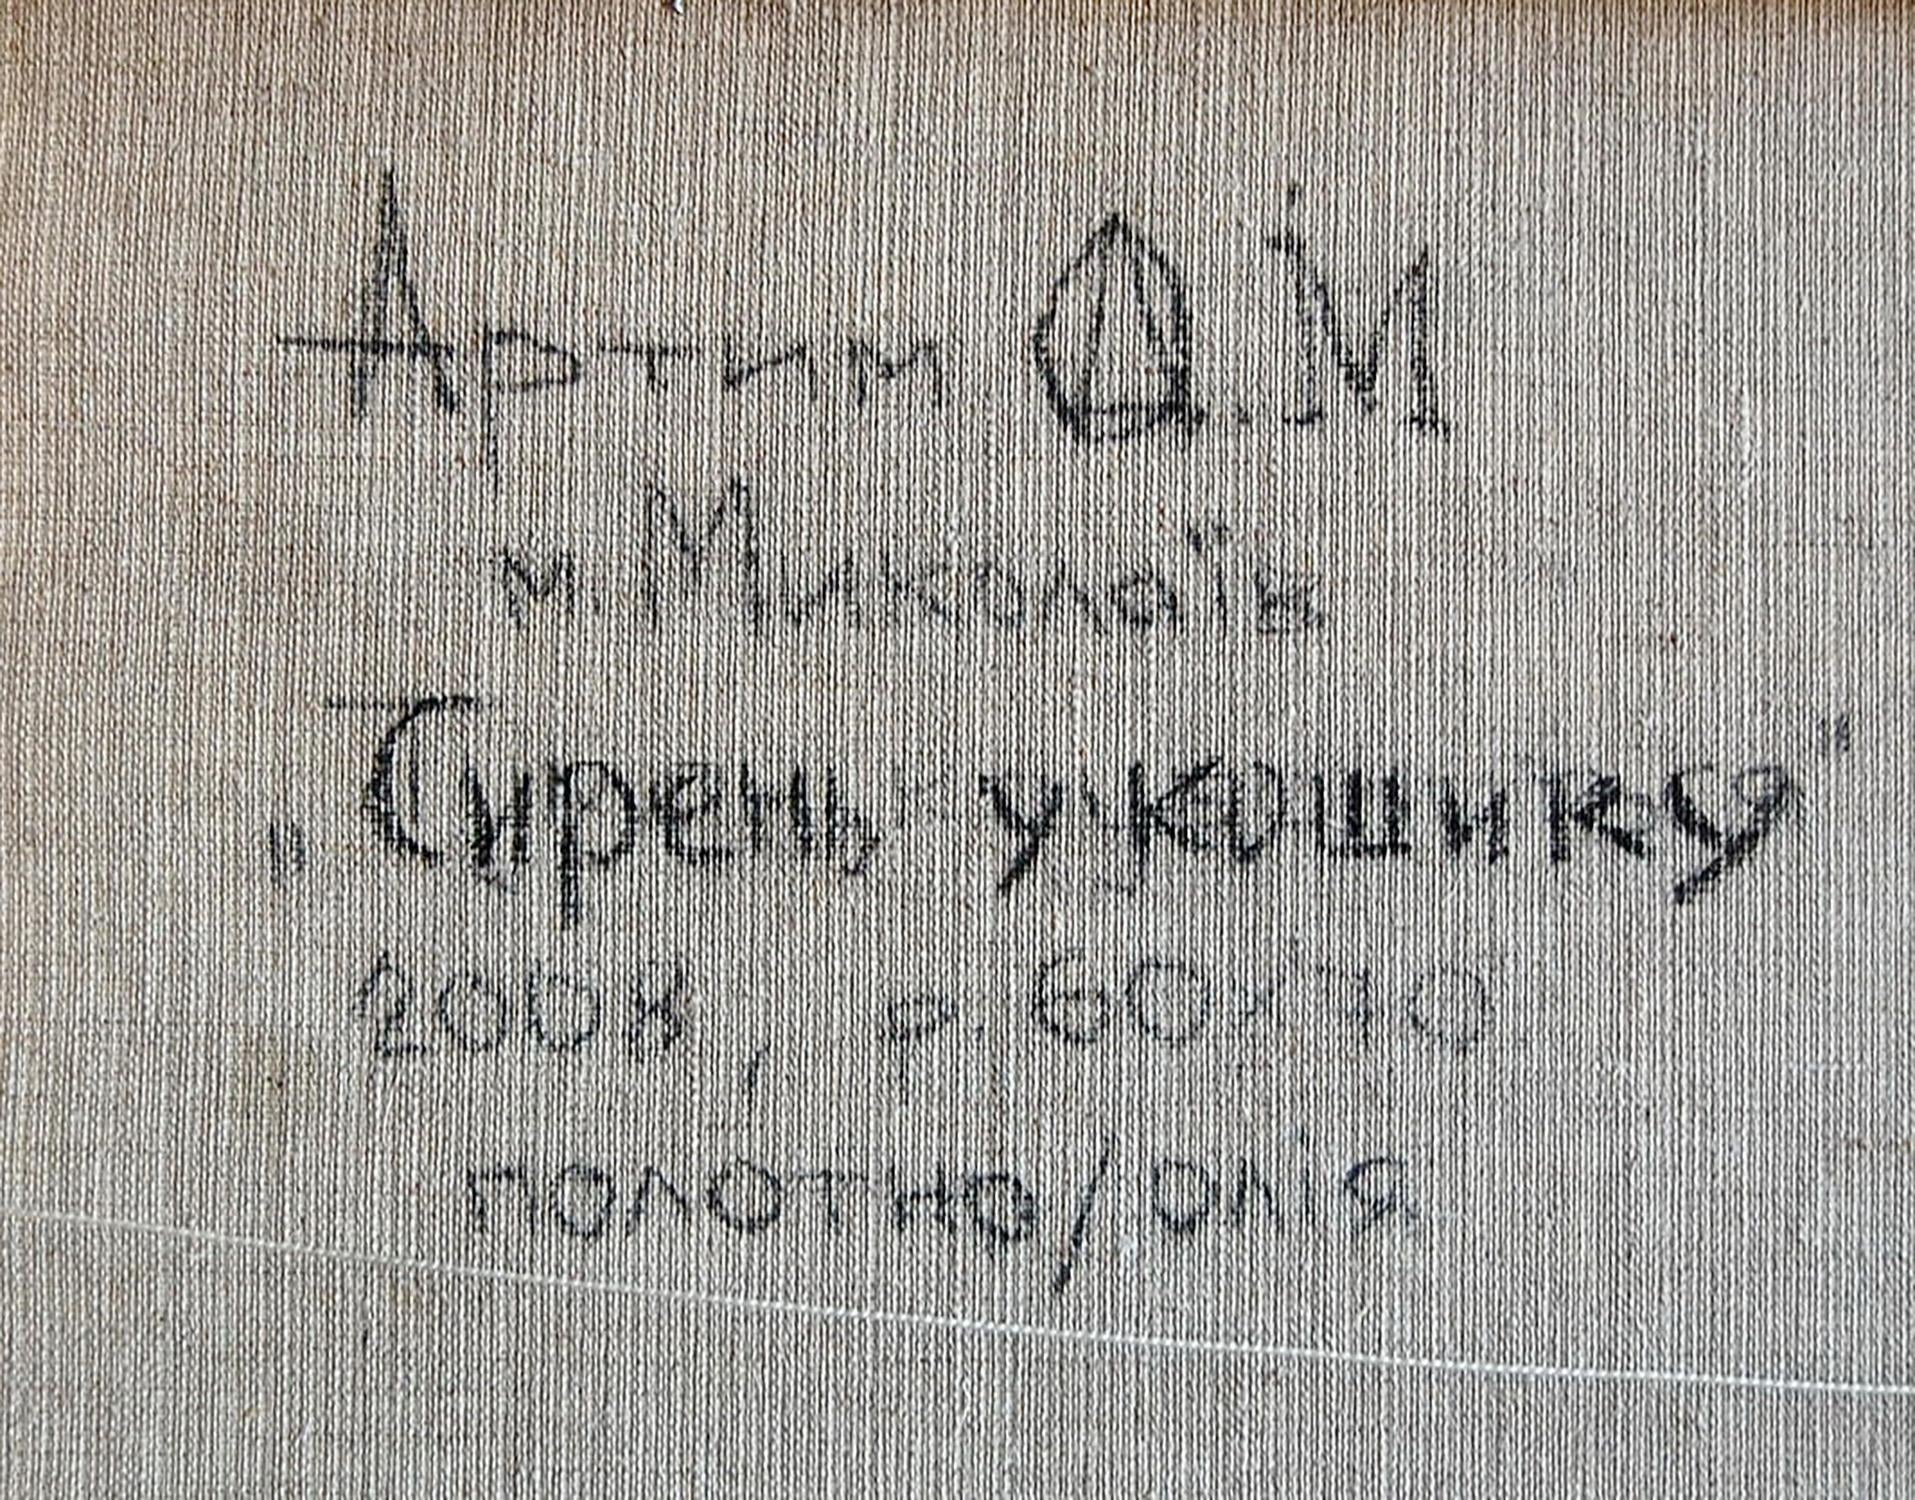 Артим О.М
м. Миколаїв
„Сирень у кошику"
2008, р. 60х70
полотно/олія